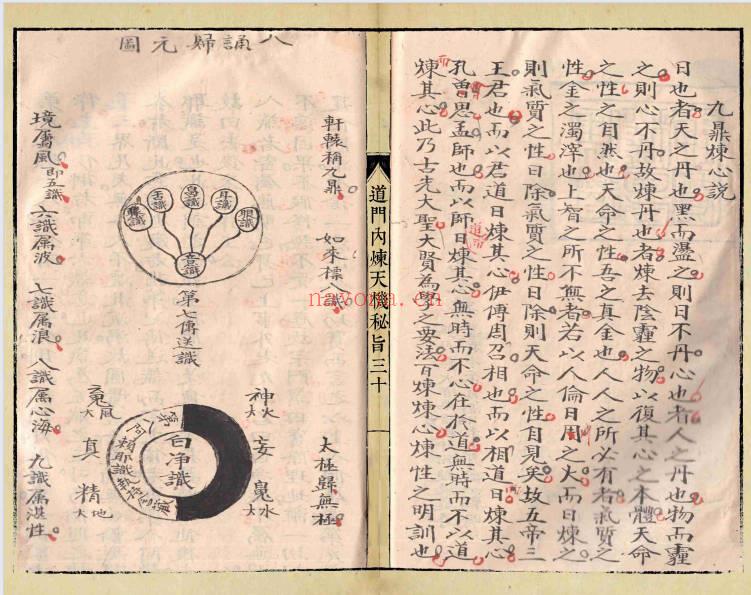 九鼎煉心說
日也者天之丹也黑而盪之則日不丹心也者人之丹也物而霾
之則心不丹故煉丹也者煉去陰霾之物以復其心之本體天命
之性之自然也天命之性吾之真金也人人之所必有者氣質之
性金之濁滓也上智之所不無者若以人倫日用之火而日煉之
則氣質之性日除氣質之性日除則天命之性自見矣故五帝三
王君也而以君道日煉其心伊傅周召相也而以相道日煉其心
孔曾思孟師也而以師日煉其心無時而不心在於道無時而不以道
煉其心此乃古先大聖大賢為學之要法百煉煉心煉性之明訓也
道門內煉天機秘旨三十
八誦婦元圖
軒轅稱九鼎 如來標八識
眼識
耳識
鼻識
舌識
意識
第七傳送識
太極歸無極
神火
妄
鬼水
白净識
風
真
精地
境屬風即五識 六識屬波 七識屬浪 八識屬心海 九識屬湛性
navoma.cn